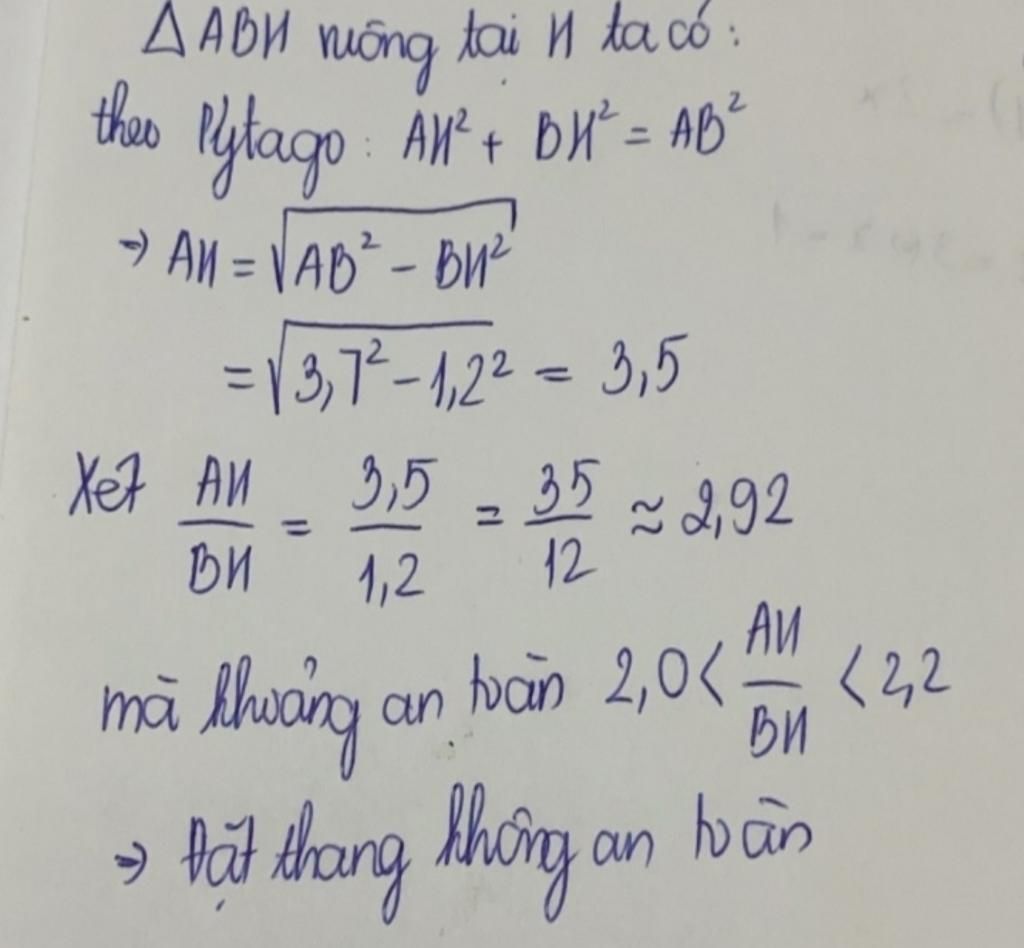 Δ ABH vuông tại H ta có:
theo Pytago: AH² + BH² = AB²
→ AH = √(AB² - BH²)
= √(3,7² - 1,2²) = 3,5
Xét AH/BH = 3,5/1,2 = 35/12 ≈ 2,92
mà khoảng an toàn 2,0 < AH/BH < 2,2
→ Đặt thang không an toàn